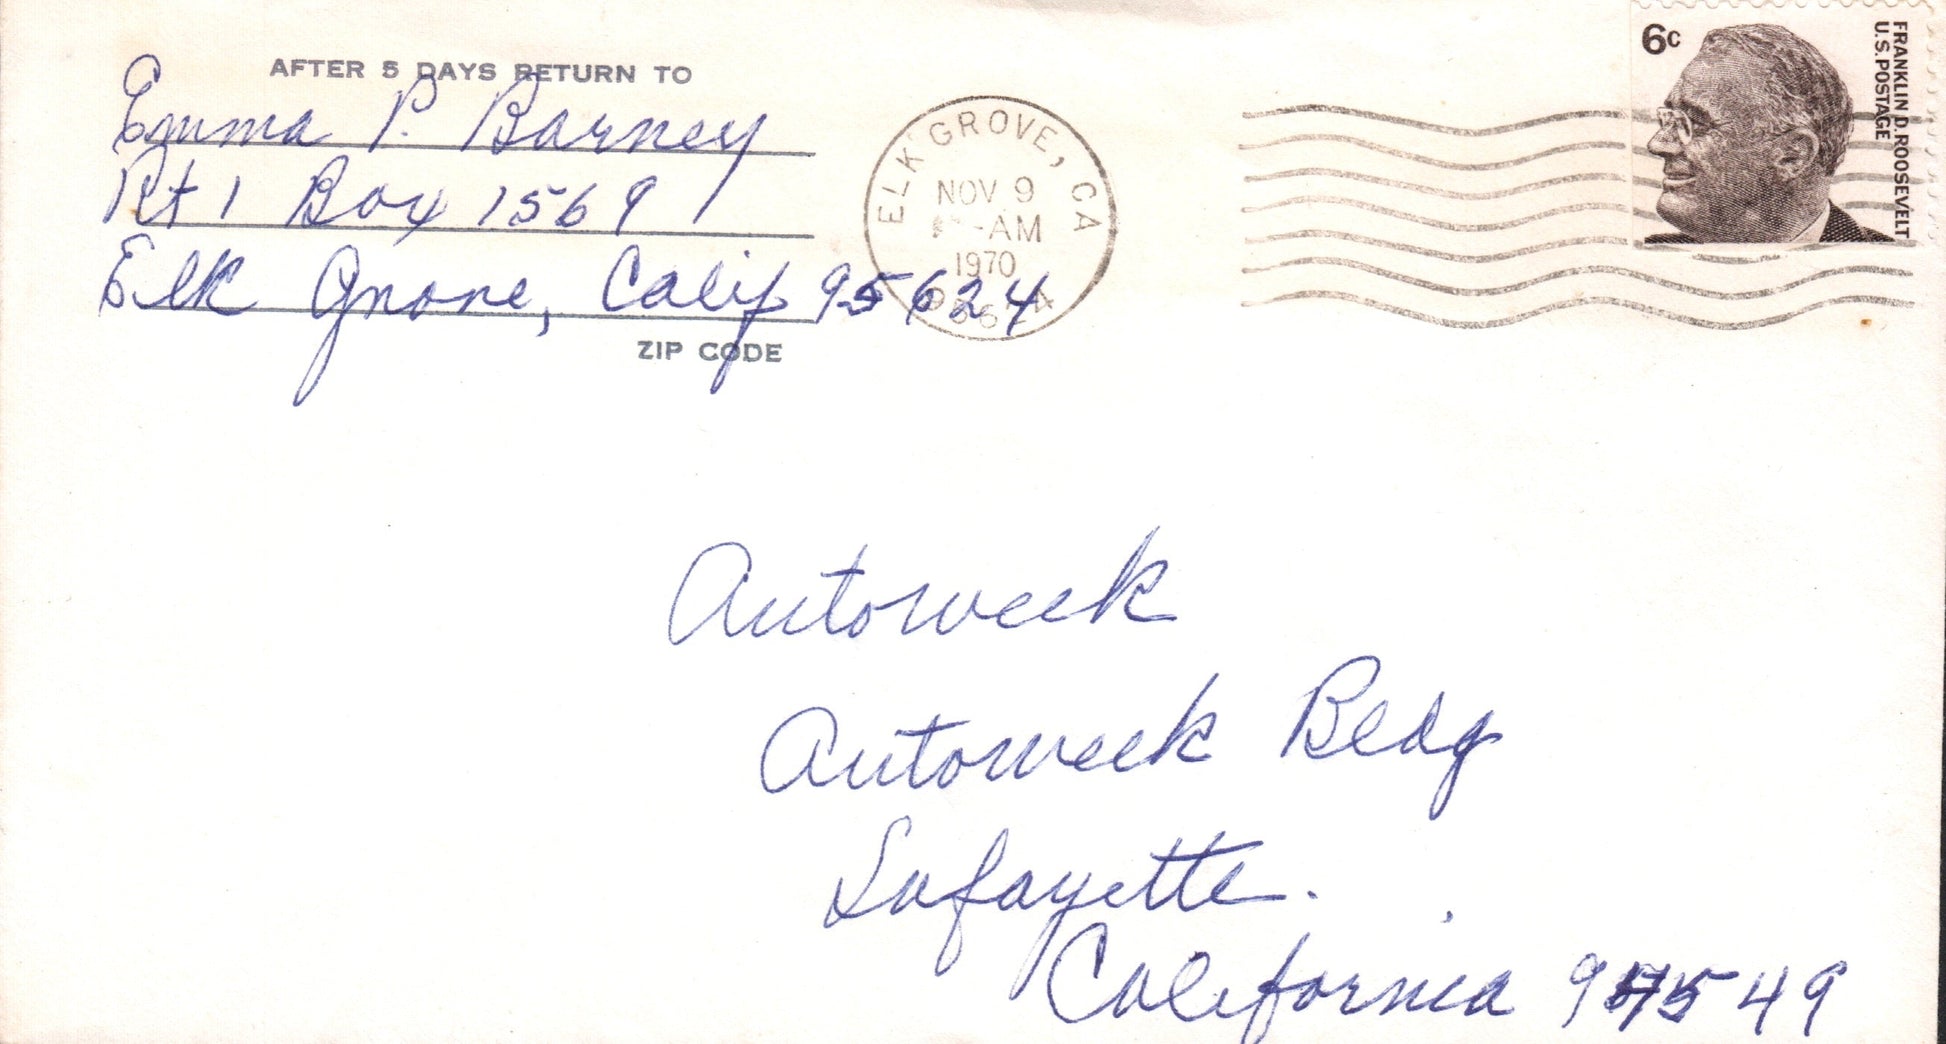 AFTER 5 DAYS RETURN TO
Emma P. Barney
Rt 1 Box 1569
Elk Grove, Calif 95624
ZIP CODE
ELK GROVE, CA
NOV 9
-AM
1970
95624
6c
FRANKLIN D. ROOSEVELT
U.S. POSTAGE
Autoweek
Autoweek Bldg
Lafayette.
California 94549